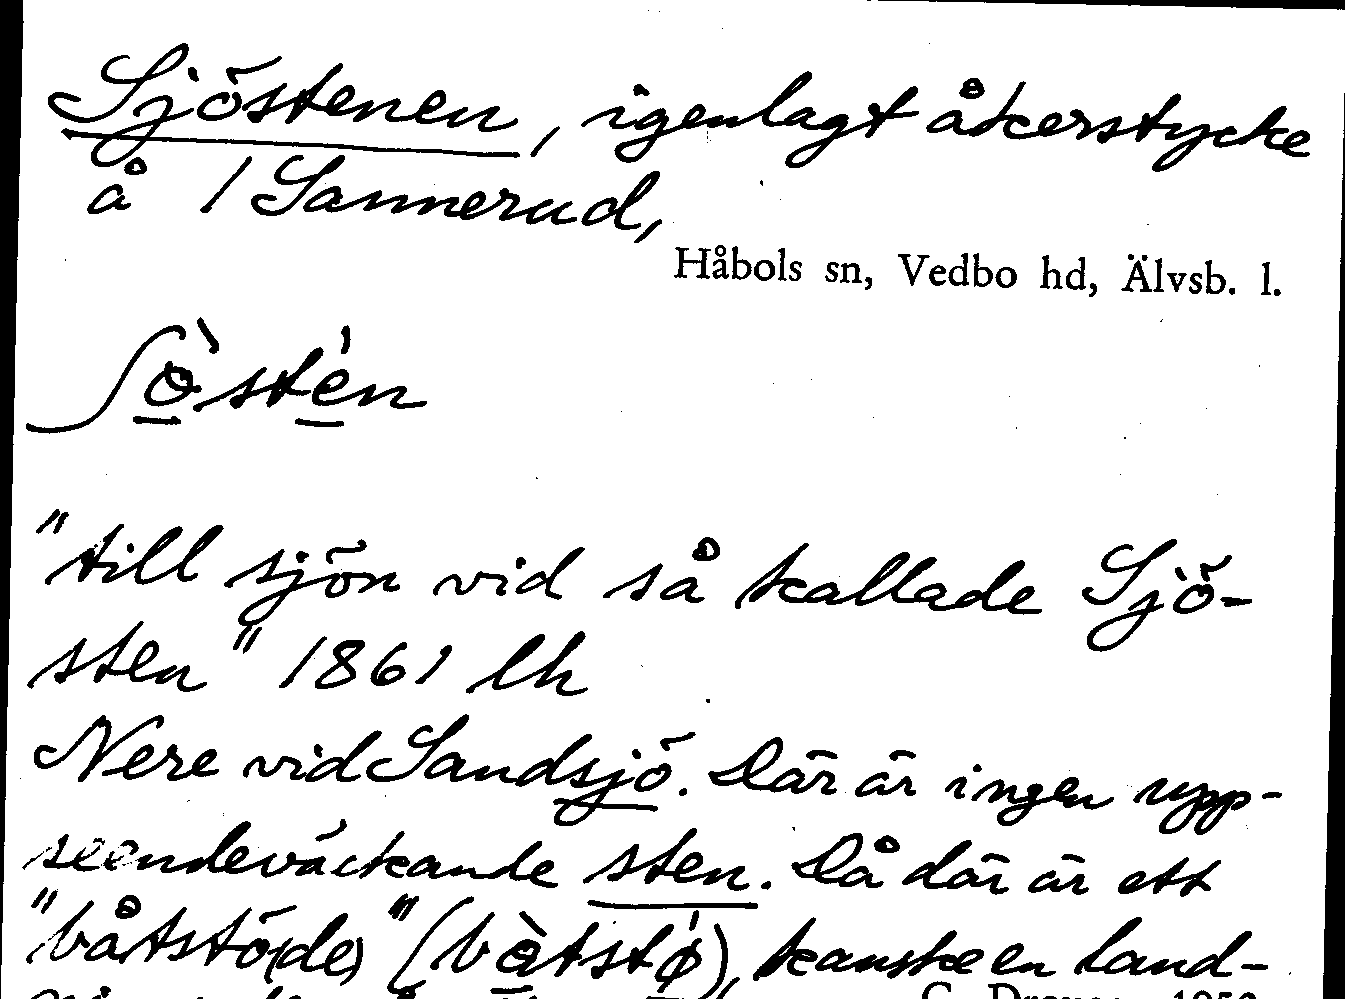 Sjöstenen, igenlagt åkerstycke
å 1 Sannerud,
Håbols sn, Vedbo hd, Älvsb. l.
"till sjön vid så kallade Sjö-
sten" 1861 lh
Nere vid Sandsjö. Där är ingen upp-
seendeväckande sten. Då där är ett
"båtstö(de)" (båtstø), kanske en land-